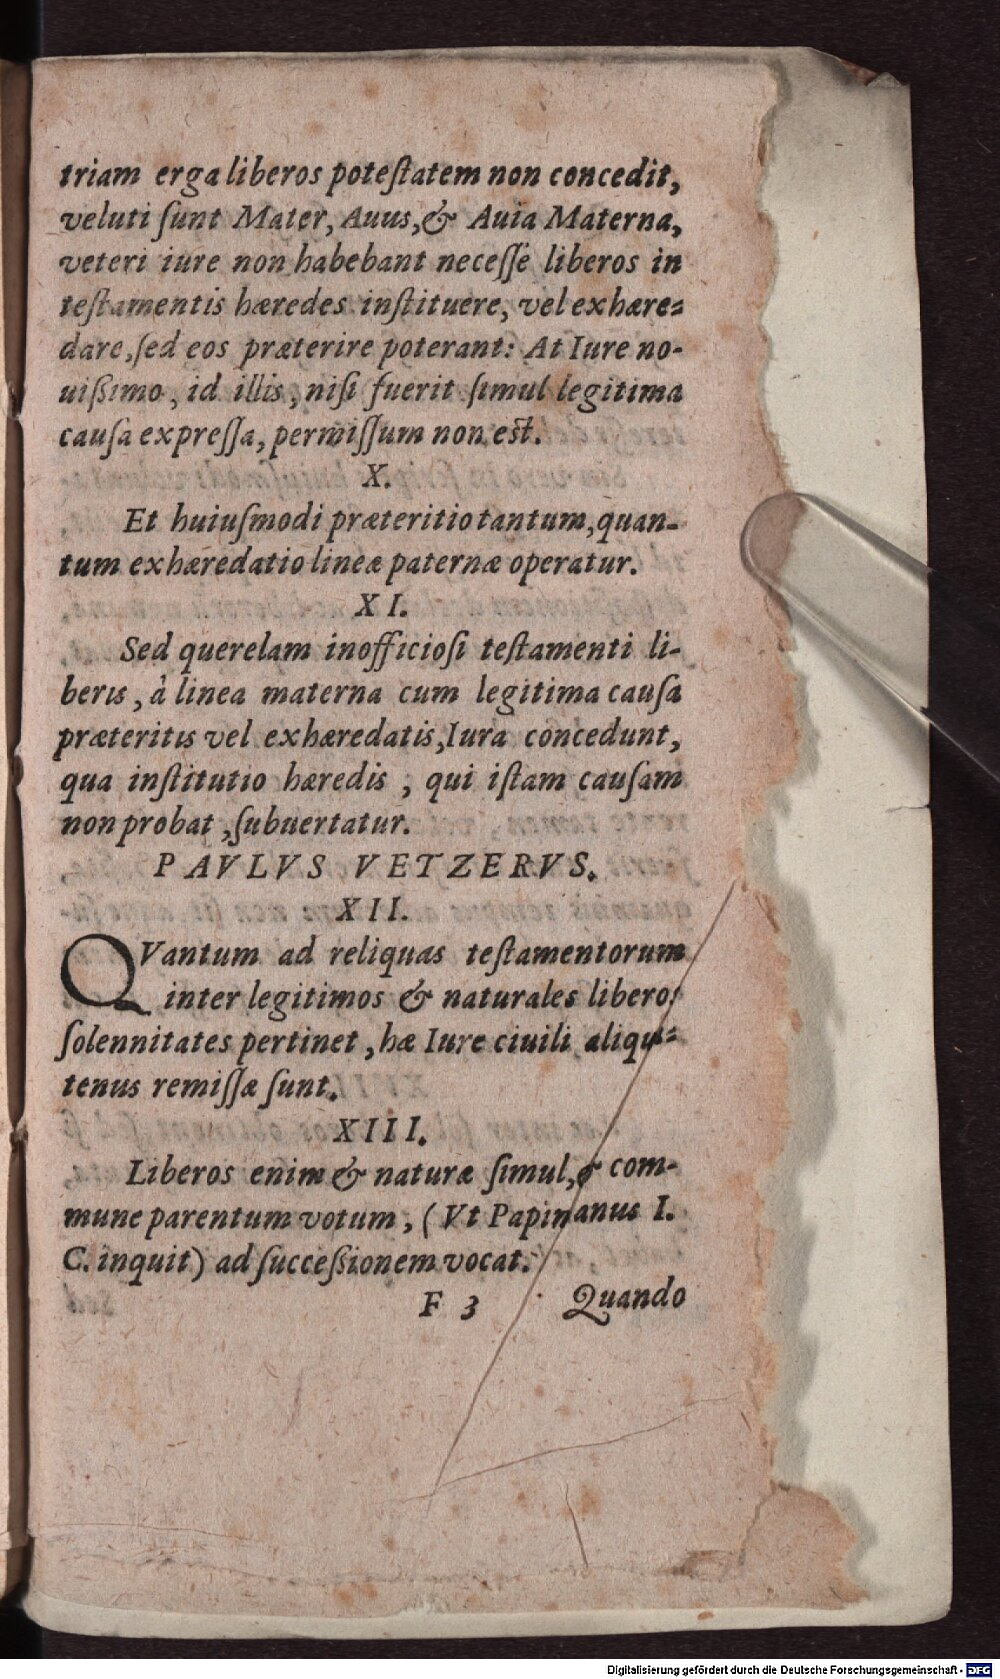 triam erga liberos poteſtatem non concedit,
veluti ſunt Mater, Auus, & Auia Materna,
veteri iure non habebant neceſſe liberos in
teſtamentis hæredes inſtituere, vel exhære-
dare, ſed eos præterire poterant: At Iure no-
uißimo, id illis, niſi fuerit ſimul legitima
cauſa expreſſa, permiſſum non eſt.
X.
Et huiuſmodi præteritio tantum, quan-
tum exhæredatio lineæ paternæ operatur.
XI.
Sed querelam inofficioſi teſtamenti li-
beris, à linea materna cum legitima cauſa
præteritis vel exhæredatis, Iura concedunt,
qua inſtitutio hæredis, qui iſtam cauſam
non probat, ſubuertatur.
PAVLVS VETZERVS.
XII.
QVantum ad reliquas teſtamentorum
inter legitimos & naturales liberos
ſolennitates pertinet, hæ Iure ciuili aliqu-
tenus remiſſæ ſunt.
XIII.
Liberos enim & naturæ ſimul, & com-
mune parentum votum, (Vt Papinianus I.
C. inquit) ad ſucceßionem vocat.
F 3 Quando
Digitalisierung gefördert durch die Deutsche Forschungsgemeinschaft - DFG